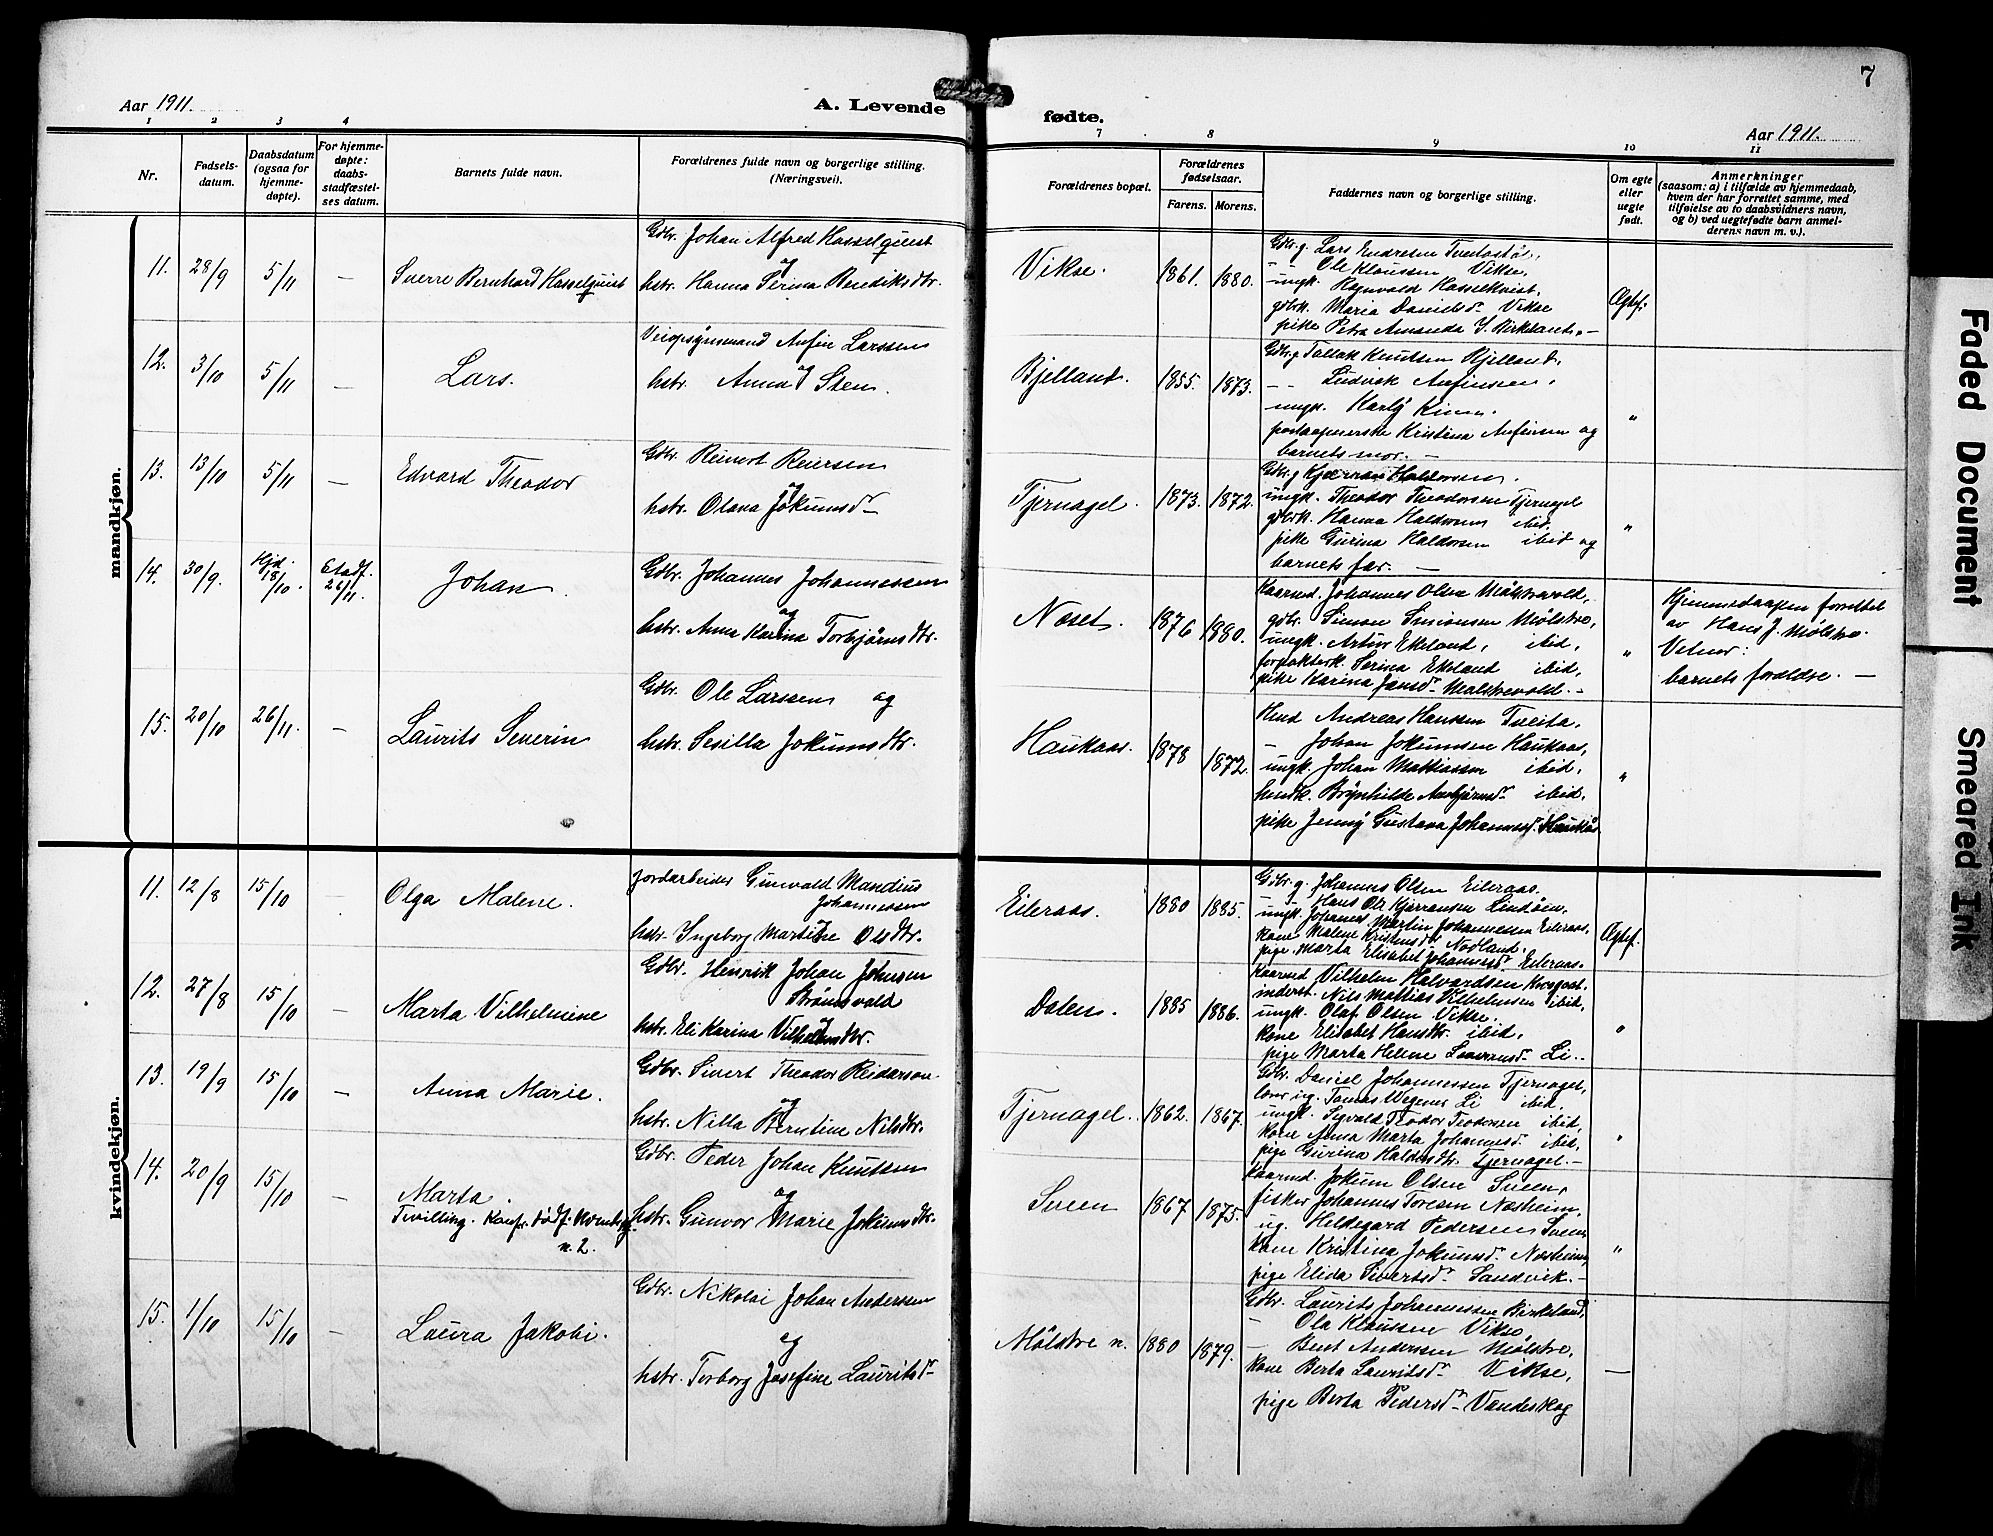 7
Aar 1911.
A. Levende
fødte.
Aar 1911.
1 2 3 4
7 8 9 10 11
Nr.
Fødsels-
datum.
Daabsdatum
(ogsaa for
hjemme-
døpte).
For hjemme-
døpte:
daabs-
stadfæstel-
ses datum.
Barnets fulde navn.
Forældrenes fulde navn og borgerlige stilling.
(Næringsvei).
Forældrenes bopæl.
Forældrenes
fødselsaar.
Farens. Morens.
Faddernes navn og borgerlige stilling.
Om egte
eller
uegte
født.
Anmerkninger
(saasom: a) i tilfælde av hjemmedaab,
hvem der har forrettet samme, med
tilføielse av to daabsvidners navn,
og b) ved uegtefødte barn anmel-
derens navn m. v.).
mandkjøn.
11. 28/9 5/11 — Sverre Bernhard Hasselquist
Gdbr. Johan Alfred Hasselquist
og
hstr. Hanna Serina Bendiksdtr.
Vikse. 1861. 1880.
Gdbr. g. Lars Endresen Tveitastøl,
- - Ole Klaussen Vikse,
ungk. Ragnvald Hasselkvist.
gdbrk. Maria Danielsd. Vikse
pike Petra Amanda S. Birkland. -
Ægtef.
12. 3/10 5/11 — Lars.
Veiopsynsmand Anfin Larssen
og
hstr. Anna Sten.
Bjelland. 1855. 1873.
Gdbr. g Tallak Knutsen Kjelland,
- - Ludvik Anfinssen,
ungk. Karly Kinn.
postaapnerske Kristina Anfinsen og
barnets mor. -
"
13. 13/10 5/11 — Edvard Theodor
Gdbr. Reinert Reiersen
og
hstr. Olava Jokumsd -
Tjernagel. 1873. 1872.
Gdbr. g Kjærran Haldorsen.
ungk. Theodor Theodorsen Tjernagel
gdbrk. Hanna Haldorsens ibid.
pike Gurina Haldorsen ibid og
barnets far. -
"
14. 30/9. Hjd. 18/10 Stadf. 26/11 Johan.
Gdbr. Johannes Johannessen
og
hstr. Anna Karina Torbjørnsdtr.
Næset. 1876 1880.
Kaarmd. Johannes Olsen Mølstrevold,
gdbr. Simon Simonsen Mølstre,
ungk. Artur Ekeland, ibid,
forpakterk. Serina Ekeland ibid,
pike Karina Jansd. Mølstrevold. -
"
Hjemmedaapen forrettet
av Hans J. Mølstre.
Vitner:
barnets foreldre. -
15. 20/10 26/11. — Laurits Severin
Gdbr. Ole Larssen og
hstr. Sesilla Jokumsdtr.
Haukaas. 1878 1872.
Hmd Andreas Hanssen Tveita,
- Johan Jokumsen Haukaas,
ungk. Johan Mattiassen ibid,
hmdk. Brynhilde Asbjørnsd. ibid,
pike Jenny Gustava Johannesd. Haukås
"
kvindekjøn.
11. 12/8 15/10 — Olga Malene.
Jordarbeider Gunvald Mandius
Johannessen
og
hstr. Ingeborg Martine Olsdtr.
Eileraas. 1880 1885.
Gdbr. g. Johannes Olsen Eileraas.
- g- Hans Ole Kjærransen Lindøen,
ungk. Johannes Martin Johannessen Eileraas,
kone Malene Kristensdtr Nodland,
pige. Marta Elisabet Johannesd. Eileraas.
Ægtef.
12. 27/8 15/10 — Marta Vilhelmine
Gdbr. Henrik Johan Johnsen
Strömsvold
og
hstr. Eli Karina Vilhelmsdtr.
Dalen. 1885 1886.
Kaarmd Vilhelm Halvardsen
inderst. Nils Mattias Vilhelmsen ibid,
ungk. Olaf Olsen Vikse.
kone Elisabet Hansdtr. ibid,
pige Marta Helene Li. -
"
13. 19/9 15/10 — Anna Marie.
Gdbr. Sivert Theodor Reidarson
og
hstr. Nilla Berntine Nilsdtr.
Tjernagel. 1862. 1867.
Gdbr. Daniel Johannessen Tjernagel,
ug. Tomas Wegner Li ibid,
ungk. Sigvald Teodor Teodorsen ibid,
kone Anna Marta Johannesd. ibid,
pige Gurina Haldorsdtr. Tjernagel. -
"
14. 20/9 15/10 — Marta.
Tvilling. Konfr. dödf. kvindekj.
n. 2.
Gdbr. Peder Johan Knutsen
og
hstr. Gunvor Marie Jokumsdtr.
Sveen 1867 1875.
Kaarmd. Jokum Olsen Sveen,
fisker Johannes Toresen Næsheim,
ug. Hildegard Pedersen Sveen
kone Kristina Jokumsd. Næsheim,
pige Elida Sivertsd. Sandvik. -
"
15. 1/10 15/10 — Laura Jakobi.
Gdbr. Nikolai Johan Anderssen
og
hstr. Torborg Josefine Lauritsd -
Mölstre n. 1880 1879.
Gdbr. Laurits Johannessen Birkeland,
- Ola Klaussen Vikse
- Bent Anderssen Mölstre,
kone Berta Lauritsd. Vikse,
pige Berta Pedersd. Vandeskog
—
Faded Document
Smeared Ink